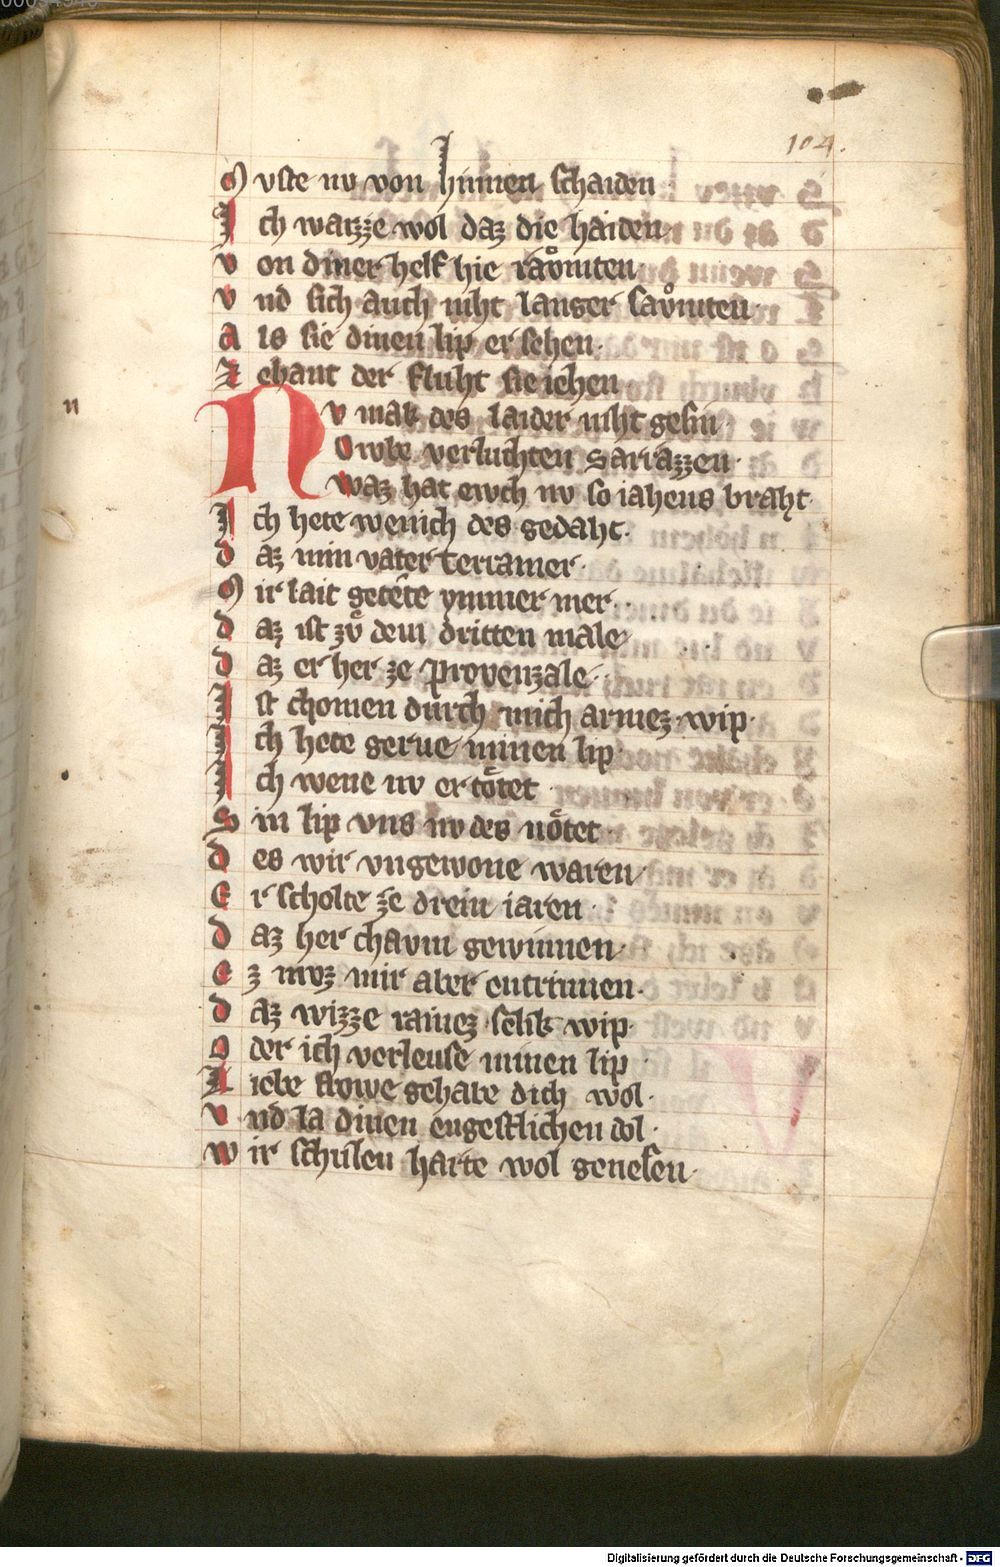 104.
Mvste nv von hinnen schaiden
Ich waizze wol daz die haiden
von diner helf hie ravͦmten
vnd sich auch niht langer savͦmten·
Als sie dinen lip ersehen·
Zehant der fluht sie iehen
Nv mak des laider niht gesin
Owbe verluchten Sarrazzen·
waz hat ewch nv so iahens braht·
Ich hete wenich des gedaht·
daz min vater terramer·
Mir lait getete ymmer mer·
daz ist zvͦ dem dritten male
daz er her ze provenzale·
Ist chomen durch mich armez wip·
Ich hete gerne minen lip
Ich wene nv ertoͤtet
Sin lip vns nv des noͤtet·
des wir vngewone waren
Er scholte ze drein iaren·
daz her chavm gewinnen·
Ez mvz mir aber entrinnen·
daz wizze rainez selik wip·
Oder ich verleuse minen lip
Liebe frowe gehabe dich wol·
vnd la dinen engestlichen dol·
wir schulen harte wol genesen·
n
Digitalisierung gefördert durch die Deutsche Forschungsgemeinschaft - DFG